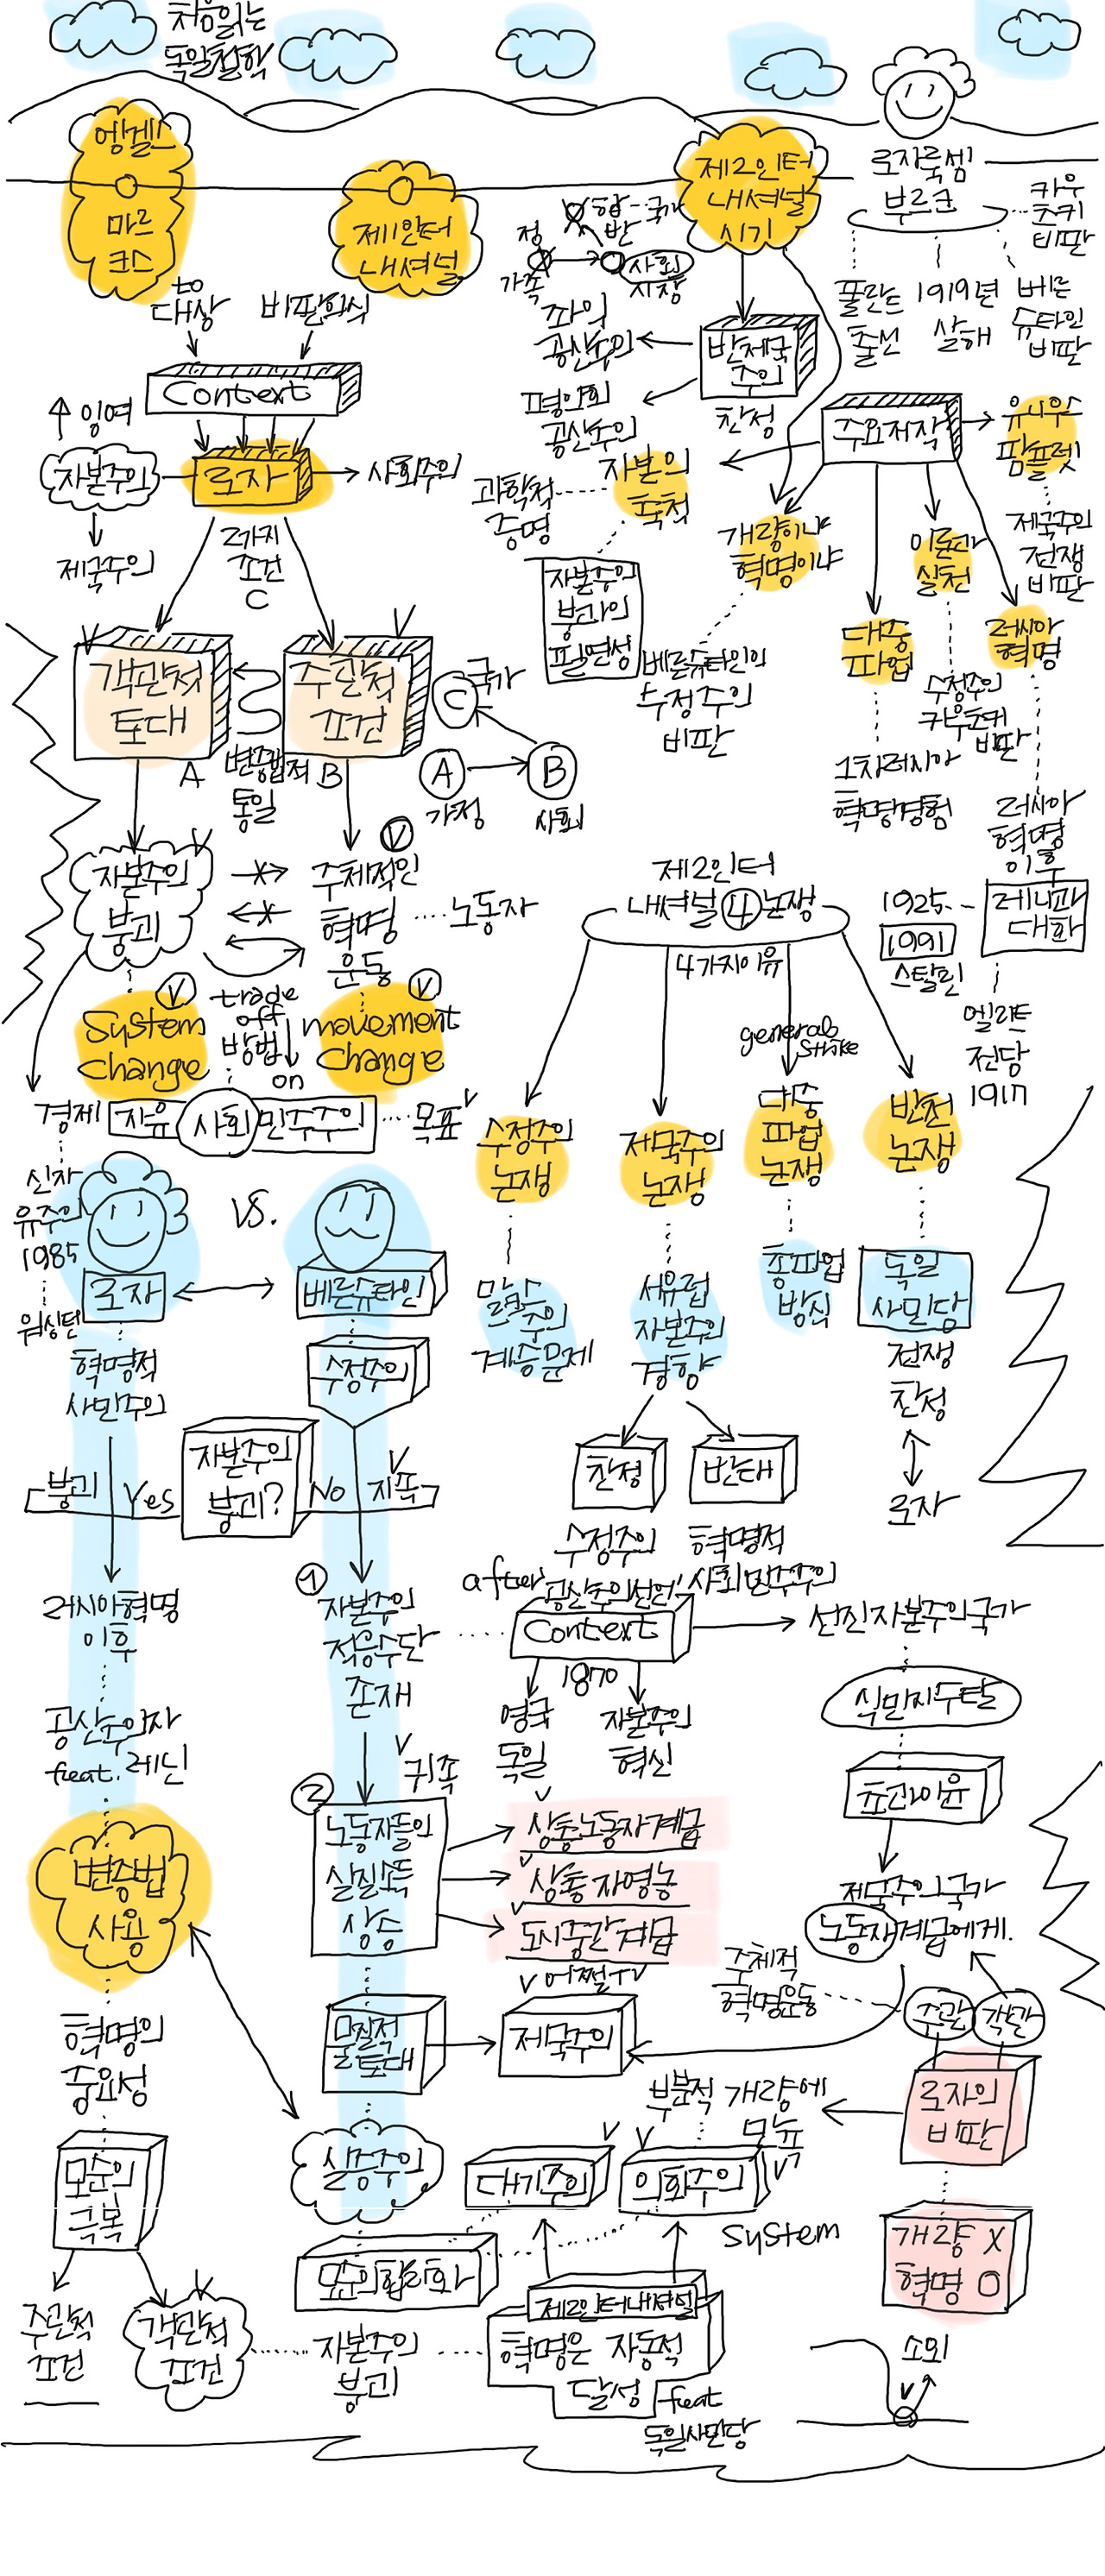 처음읽는
독일철학
엥겔스
마르
크스
제1인터
내셔널
제2인터
내셔널
시기
로자룩셈
부르크
카우
츠키
비판
폴란드
출신
1919년
살해
베른
슈타인
비판
정
가족
합
국가
반
사회
시장
좌익
공산주의
평의회
공산주의
반제국
주의
찬성
to
대상
비판의식
Context
잉여
자본주의
제국주의
로자
사회주의
2가지
조건
C
주요저작
유니우스
팜플렛
제국주의
전쟁
비판
자본의
축적
과학적
증명
자본주의
붕괴의
필연성
개량이냐
혁명이냐
베른슈타인의
수정주의
비판
대중
파업
1차러시아
혁명경험
이론과
실천
수정주의
카우츠키
비판
러시아
혁명
러시아
혁명
이후
레닌과
대화
1925
1991
스탈린
엘리트
전당
1917
객관적
토대
A
변증법적
통일
주관적
조건
B
C
국가
A
가정
B
사회
자본주의
붕괴
주체적인
혁명
운동
노동자
System
change
trade
off
방법
on
movement
change
경제
자유
사회
민주주의
목표
신자
유주의
1985
워싱턴
로자
VS.
베른슈타인
혁명적
사민주의
수정주의
자본주의
붕괴?
붕괴
Yes
No
지속
러시아혁명
이후
공산주의자
feat. 레닌
변증법
사용
혁명의
중요성
모순의
극복
주관적
조건
객관적
조건
자본주의
붕괴
①
자본주의
적응수단
존재
②
귀족
노동자들의
실질소득
상승
상층노동자계급
상층 자영농
도시중간계급
어쩔TV
물질적
토대
제국주의
실증주의
모순의합리화
제2인터
내셔널 ④ 논쟁
4가지이유
general
strike
수정주의
논쟁
제국주의
논쟁
대중
파업
논쟁
반전
논쟁
맑스
주의
계승문제
서유럽
자본주의
경향
총파업
방식
독일
사민당
전쟁
찬성
로자
찬성
반대
수정주의
혁명적
사회민주주의
after
공산주의선언
Context
1870
영국
독일
자본주의
혁신
선진자본주의국가
식민지수탈
초과이윤
제국주의국가
노동자계급에게.
주체적
혁명운동
주관
객관
로자의
비판
부분적 개량에
매몰
대기주의
의회주의
System
제2인터내셔널
혁명은 자동적
달성
feat
독일사민당
개량 X
혁명 O
소외